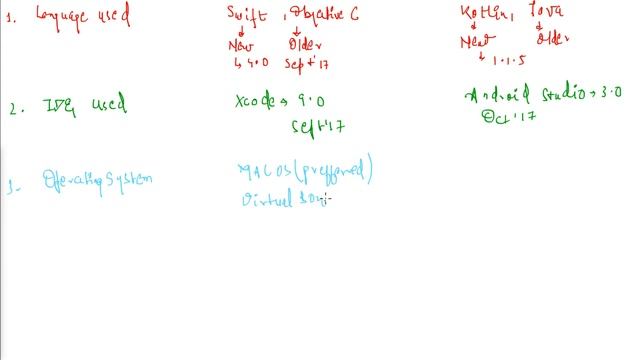 1. Language used
Swift , Objective C
New Older
↳ 4.0 Sept '17
Kotlin, Java
New Older
1.1.5
2. IDE used
Xcode → 9.0
Sept '17
Android Studio → 3.0
Oct '17
3. Operating System
MAC OS (preffered)
Virtual